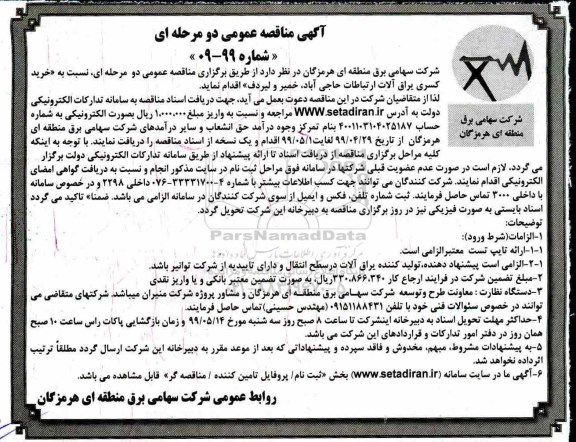 آگهی مناقصه عمومی دو مرحله ای
« شماره ۹۹-۰۹ »
شرکت سهامی برق
منطقه ای هرمزگان
شرکت سهامی برق منطقه ای هرمزگان در نظر دارد از طریق برگزاری مناقصه عمومی دو مرحله ای، نسبت به «خرید
کسری یراق آلات ارتباطات حاجی آباد، خمیر و لیردف» اقدام نماید.
لذا از متقاضیان شرکت در این مناقصه دعوت بعمل می آید، جهت دریافت اسناد مناقصه به سامانه تدارکات الکترونیکی
دولت به آدرس WWW.setadiran.ir مراجعه و نسبت به واریز مبلغ ۱.۰۰۰.۰۰۰ ریال بصورت الکترونیکی به شماره
حساب ۴۰۰۱۱۰۳۱۰۴۰۲۵۱۸۷ بنام تمرکز وجوه درآمد حق انشعاب و سایر درآمدهای شرکت سهامی برق منطقه ای
هرمزگان از تاریخ ۹۹/۰۴/۲۹ لغایت ۹۹/۰۵/۱ اقدام و یک نسخه از اسناد مناقصه را دریافت نمایند. با توجه به اینکه
کلیه مراحل برگزاری مناقصه از دریافت اسناد تا ارائه پیشنهاد از طریق سامانه تدارکات الکترونیکی دولت برگزار
می گردد، لازم است در صورت عدم عضویت قبلی شرکتها در سامانه فوق مراحل ثبت نام در سایت مذکور انجام و نسبت به دریافت گواهی امضای
الکترونیکی اقدام نمایند. شرکت کنندگان می توانند جهت کسب اطلاعات بیشتر با شماره ۴-۰۷۶-۳۳۳۳۱۷۰۰ داخلی ۲۲۹۸ و در خصوص سامانه
با داخلی ۳۰۰۰ تماس حاصل فرمایند. ثبت شماره تلفن، فکس و ایمیل از سوی شرکت کنندگان در سامانه الزامی می باشد. ضمنا» تاکید می گردد
اسناد بایستی به صورت فیزیکی نیز در روز برگزاری مناقصه به دبیرخانه این شرکت تحویل گردد.
توضیحات:
۱-الزامات(شرط ورود):
۱-۱-ارائه تایپ تست معتبر الزامی است.
۲-۱-الزامی است پیشنهاد دهنده، تولید کننده یراق آلات درسطح انتقال و دارای تاییدیه از شرکت توانیر باشد.
۲-مبلغ تضمین شرکت در فرایند ارجاع کار ۳۳۰.۸۶۶.۳۴۰ ریال به صورت تضمین معتبر بانکی و یا واریز نقدی
۳-دستگاه نظارت : معاونت طرح و توسعه شرکت سهامی برق منطقه ای هرمزگان و مشاور پروژه شرکت منیران میباشد. شرکتهای متقاضی می
توانند در خصوص سئوالات فنی خود با تلفن ۰۹۱۵۱۱۸۸۴۳۱ (مهندس حسینی) تماس حاصل فرمایند.
۴-حداکثر مهلت تحویل اسناد به دبیرخانه اینشرکت تا ساعت ۸ صبح روز سه شنبه مورخ ۹۹/۰۵/۱۴ و زمان بازگشایی پاکات راس ساعت ۱۰ صبح
همان روز در دفتر امور تدارکات و قراردادهای این شرکت می باشد.
۵-به پیشنهادات مشروط، مبهم، مخدوش و فاقد سپرده و پیشنهاداتی که بعد از موعد مقرر به دبیرخانه این شرکت ارسال گردد مطلقاً ترتیب
اثرداده نخواهد شد.
۶-آگهی ما در سایت سامانه (www.setadiran.ir) بخش «ثبت نام/ پروفایل تامین کننده / مناقصه گر» قابل مشاهده می باشد.
روابط عمومی شرکت سهامی برق منطقه ای هرمزگان
ParsNamadData